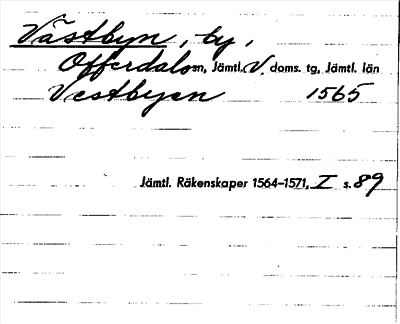 Västbyn, by,
Offerdals sn, Jämtl. V. doms. tg, Jämtl. län
Vestbyen 1565
Jämtl. Räkenskaper 1564-1571, I s. 89